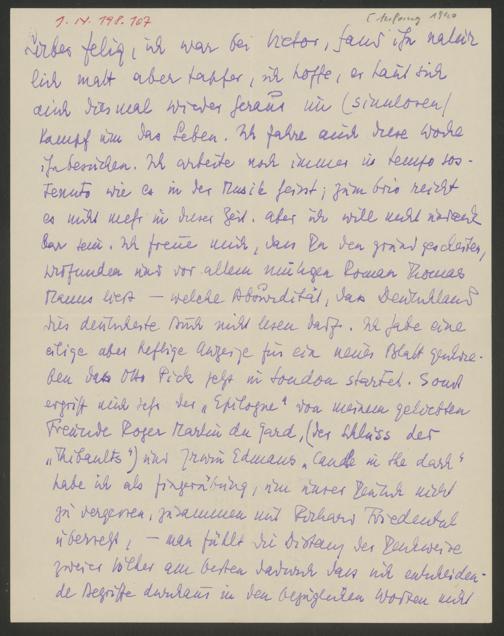 1. IX. 198.107
[Anfang 1940
Lieber Felix, ich war bei Victor, fand ihn natür
lich matt aber tapfer, ich hoffe, er haut sich
auch diesmal wieder heraus im (sinnlosen)
Kampf um das Leben. Ich fahre auch diese Woche
ihn besuchen. Ich arbeite noch immer in tempo sos-
tenuto wie es in der Musik heisst; zum brio reicht
es nicht mehr in dieser Zeit. Aber ich will nicht undank
bar sein. Ich freue mich, dass Du den grundgescheiten,
profunden und vor allem muthigen Roman Thomas
Manns liest – welche Absurdität, dass Deutschland
dies deutscheste Buch nicht lesen darf. Ich habe eine
eilige aber heftige Anzeige für ein neues Blatt geschrie-
ben das Otto Pick jetzt in London startet. Sonst
ergriff mich sehr der „Epilogue" von meinem geliebten
Freunde Roger Martin du Gard, (der Schluss der
„Thibaults") und Irwin Edmans „Candle in the dark"
habe ich als Fingerübung, um unser Deutsch nicht
zu vergessen, zusammen mit Richard Friedenthal
übersetzt, – man fühlt die Distanz der Denkweise
zweier Völker am besten dadurch dass sich entscheiden-
de Begriffe durchaus in den bezüglichen Worten nicht